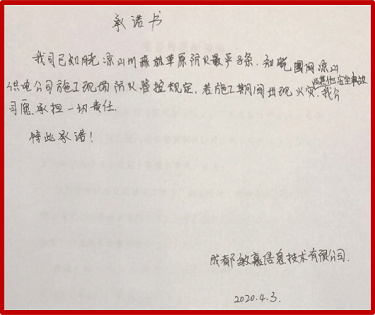 承诺书
我司已知晓凉山州森林草原防火最严8条,知晓国网凉山
供电公司施工现场防火管控规定,若施工期间出现火灾及其他安全事故,我
司愿承担一切责任。
特此承诺!
成都敏嘉信息技术有限公司.
2020.4.3.